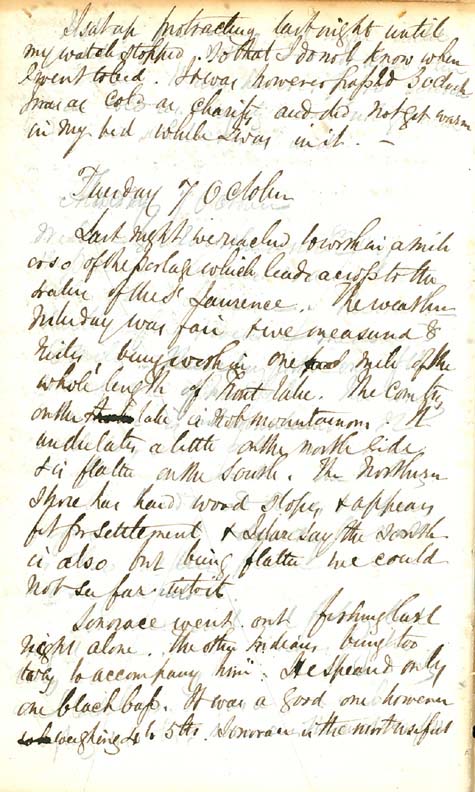 I sat up protracting last night until
my watch stopped. So that I do not know when
I went to bed. It was however past 3 oclock
I was as cold as charity and did not get warm
in my bed while I was in it. —
Tuesday 7 October
Last night we reached to within a mile
or so of the portage which leads across to the
waters of the St Laurence. The weather
yesterday was fair & we measured 8
miles, being within one mile of the
whole length of Trout lake. The country
on the lake is not mountainous. It
undulates a little on the north side
& is flatter on the South. The Northern
Shore has hard wood slopes & appears
fit for settlement & I dare say the South
is also but being flatter we could
not see far into it
went out fishing last
night alone. The other Indians being too
lazy to accompany him. He speared only
one black bass. It was a good one however
weighing 4 to 5 lbs. is the most useful